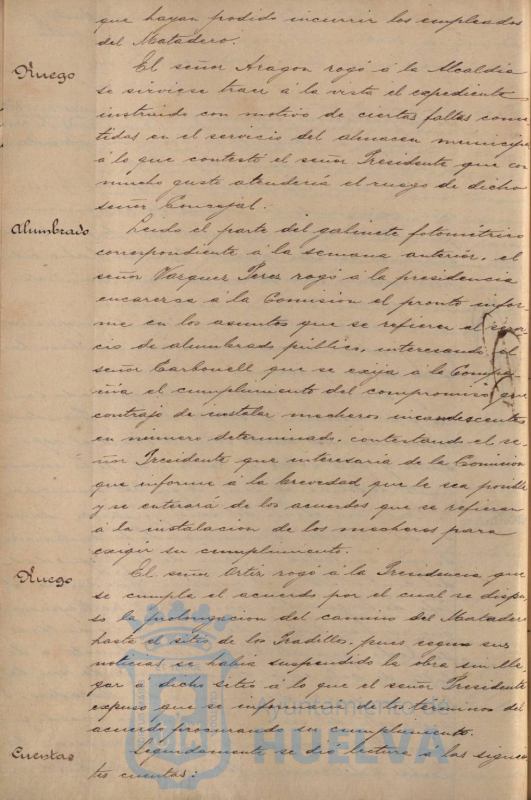 que hayan podido incurrir los empleados
del Matadero.
Ruego
El señor Aragon rogó á la Alcaldia
se sirviese traer á la vista el expediente
instruido con motivo de ciertas faltas come-
tidas en el servicio del almacen municipal
á lo que contestó el señor Presidente que con
mucho gusto atendería el ruego de dicho
señor Concejal.
Alumbrado
Leido el parte del gabinete fotométrico
correspondiente á la semana anterior, el
señor Vazquez Perez rogó á la presidencia
encarezca á la Comision el pronto infor-
me en los asuntos que se refieren al servi-
cio de alumbrado público, interesando el
señor Carbonell que se exija á la Compa-
ñia el cumplimiento del compromiso que
contrajo de instalar mecheros incandescentes
en número determinado, contestando el se-
ñor Presidente que interesaria de la Comision
que informe á la brevedad que le sea posible
y se enterará de los acuerdos que se refieran
á la instalacion de los mecheros para
exigir su cumplimiento.
Ruego
El señor Ortiz rogó á la Presidencia que
se cumpla el acuerdo por el cual se dispu-
so la prolongacion del camino del Matadero
hasta el sitio de los pues segun sus
noticias se habia suspendido la obra sin lle-
gar á dicho sitio á lo que el señor Presidente
expuso que se informaria de los términos del
acuerdo procurando su cumplimiento.
Cuentas
Seguidamente se dió lectura á las siguien-
tes cuentas:
Ayuntamiento de
HUELVA